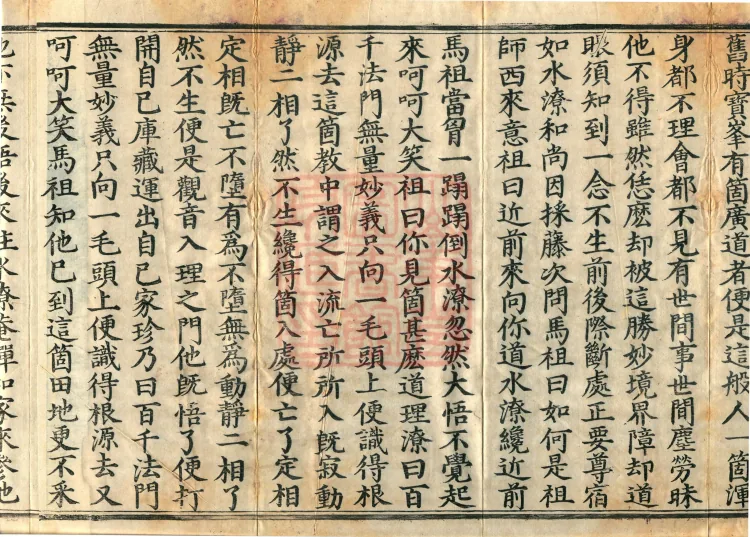 舊時寶峯有箇廣道者便是這般人一箇渾
身都不理會都不見有世間事世間塵勞昧
他不得雖然恁麽却被這勝妙境界障却道
眼須知到一念不生前後際斷處正要尊宿
如水潦和尚因採藤次問馬祖曰如何是祖
師西來意祖曰近前來向你道水潦纔近前
馬祖當胷一蹋蹋倒水潦忽然大悟不覺起
來呵呵大笑祖曰你見箇甚麽道理潦曰百
千法門無量妙義只向一毛頭上便識得根
源去這箇教中謂之入流亡所所入旣寂動
靜二相了然不生纔得箇入處便亡了定相
定相旣亡不墮有爲不墮無爲動靜二相了
然不生便是觀音入理之門他旣悟了便打
開自己庫藏運出自己家珍乃曰百千法門
無量妙義只向一毛頭上便識得根源去又
呵呵大笑馬祖知他已到這箇田地更不采